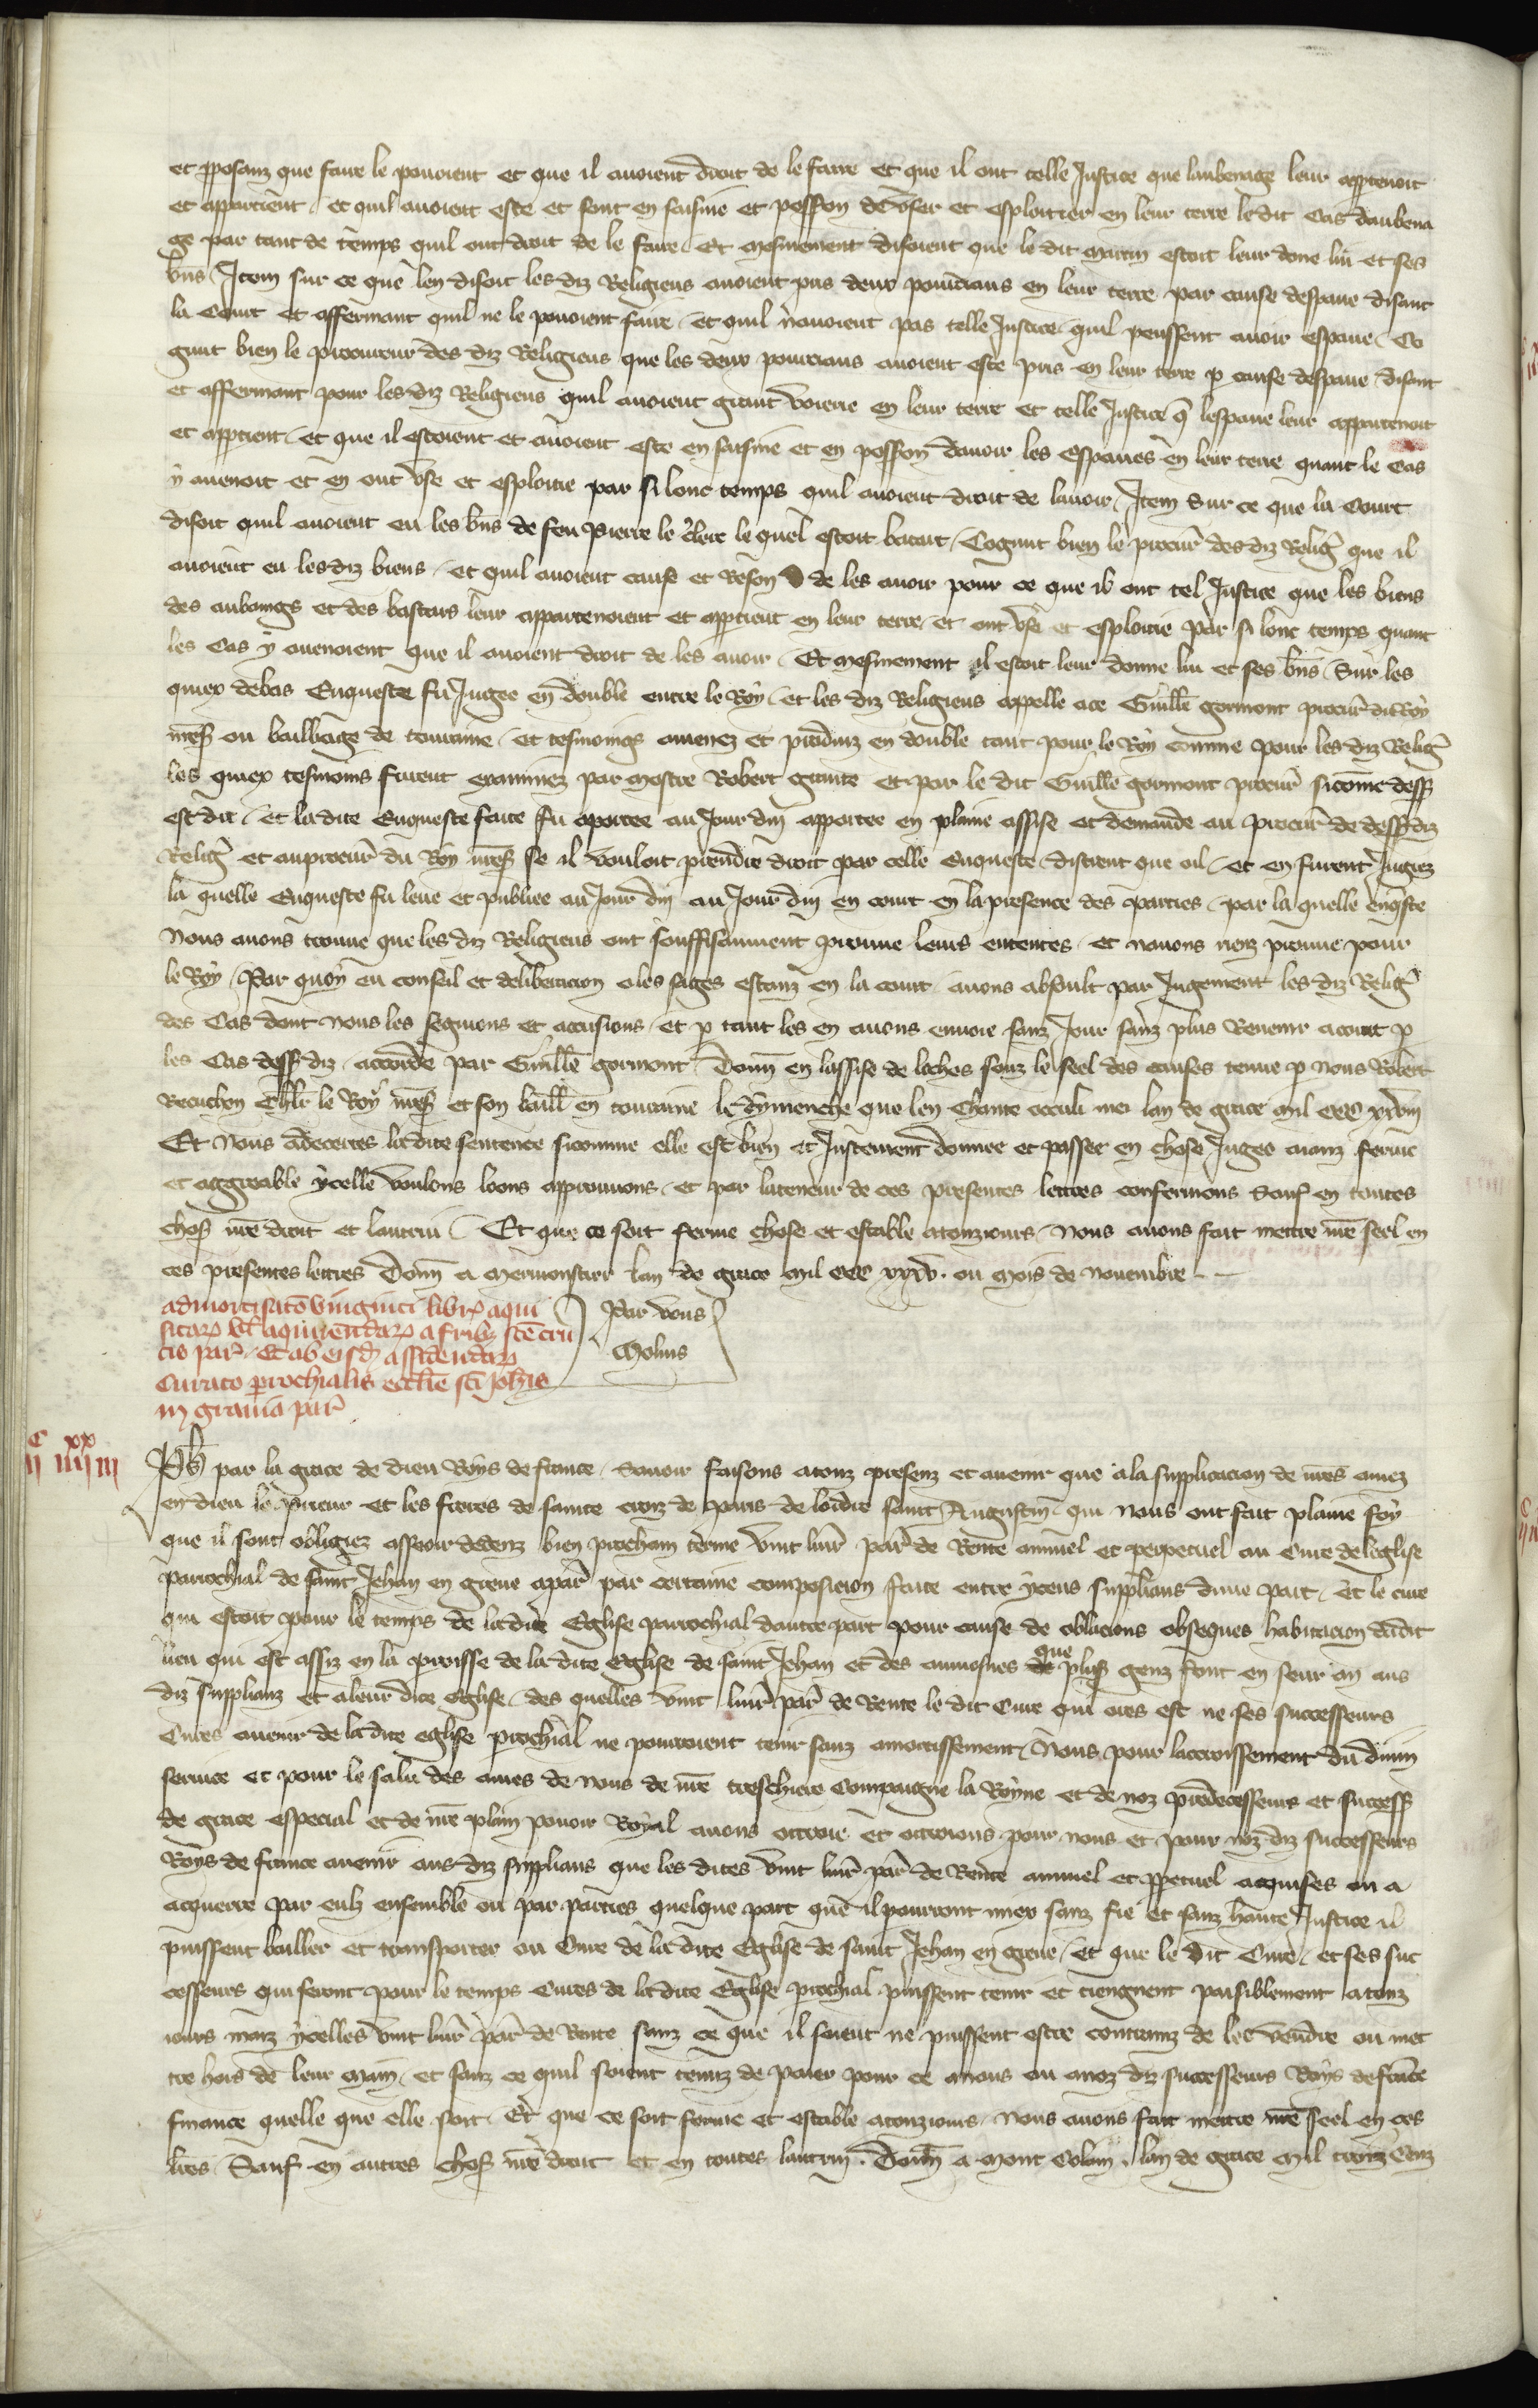 et proposanz que faire le pouoient et que il auoient droit de le faire et que il ont telle Justice que laubenage leur appartenoit
et appartient. et quil auoient este et sont en saisine et possession de vser et esploitier en leur terre le dit cas daubena
ge par tant de temps quil ont droit de le faire. Et mesmement disoient que le dit martin estoit leur done lui et ses
bns. Item sur ce que len disoit les diz Religieus auoient pris deux pourceaus en leur terre par cause despaue disant
la Court et affermant quil ne le pouoient faire. et quil nauoient pas telle Justice quil peussent auoir espaue. Co
gnut bien le procureur des diz Religieus que les deux pourceaus auoient este pris en leur terre p cause despaue disant
et affermant pour les diz Religieus quil auoient grant voierie en leur terre et telle Justice q lespaue leur appartenoit
et apptient. et que il estoient et auoient este en saisine et en possession dauoir les espaues en leur terre quant le cas
y auenoit et en ont vse et esploitie par si lonc temps quil auoient droit de lauoir. Item Sur ce que la Court
disoit quil auoient eu les bns de feu Pierre le clerc le quel estoit batart. Cognut bien le procur des diz Relig que il
auoient eu les diz biens. et quil auoient cause et Reson de les auoir pour ce que il ont tel Justice que les biens
des aubaings et des bastars leur appartenoient et appartient en leur terre. et ont vse et esploitie par si lonc temps quant
les cas y auenoient que il auoient droit de les auoir. Et mesmement il estoit leur donne lui et ses bns. Sur les
quiex debas Enqueste fu Jugee en double entre le Roy. et les diz Religieus appelle a ce Guille gormont procur du Roy
nres ou bailliage de touraine. et tesmoings amenez et produiz en double tant pour le Roy comme pour les diz Relig
les quiex tesmoins furent examinez par mestre Robert et par le dit Guille gormont procur sicome dess
est dit. et la dite Enqueste faite fu aportee au Jour duy apportee en plaine assise et demande au procur de dess diz
Relig et au procur du Roy nres se il vouloit prendre droit par celle Enqueste. distrent que oil. et en furent Jugiez
la quelle Enqueste fu leue et publiee au Jour duy au Jour duy en court en la presence des parties. par la quelle enqste
Nous auons trouue que les diz Religieus ont souffisaument prouue leurs ententes. et nauons riens prouue pour
le Roy. Par quoy eu conseil et deliberacion o les sages estanz en la court auons absoult par Jugement les diz Relig
des Cas dont nous les seguions et accusions. et p tant les en auons enuoie sanz Jour sanz plus Reuenir a court p
les Cas dess diz. accorde par Guille gormont. Donn en lassise de loches souz le seel des causes tenue p nous Robert
Recuchon Chlr le Roy nres et son baill en touraine le dymenche que len chante occuli mei lan de grace mil ccc xxviij
Et nous adecertes la dite sentence sicomme elle est bien et Justement donnee et passee en chose Jugee aianz ferme
et aggreable ycelle voulons loons approuuons. et par la teneur de ces presentes lettres confermons Sauf en toutes
choses nre droit et lautrui. Et que ce soit ferme chose et estable a touzjours. Nous auons fait mettre nre seel en
ces presentes lettres Donn a Mermoustier lan de grace mil ccc xxxv. ou mois de nouembre.
admortisatio viinginti librar aqui
sitarum vel aquirendarum a fribus sce cru
cis par. Et ab eisd assidendarum
Curato prochialis ecclie sci Johis
in grauia par
Par vous
Molins
C xx
ij iiij iij
Ph par la grace de dieu Roys de france. Sauoir faisons a touz presenz et auenir que a la supplicacion de nres amez
en dieu le prieur et les freres de sainte croiz de Paris de lordre saint Augustin qui nous ont fait plaine foy
que il sont obligiez asseoir dedenz bien prochain terme vint liur par de Rente annuel et perpetuel au Cure de leglise
parrochial de saint Jehan en greue a par par certaine composicion faite entre yceus supplians dune part. Et le cure
qui estoit pour le temps de la dite Eglise parrochial dautre part pour cause de oblacions obseques habitacion dudit
lieu qui est assiz en la parroisse de la dite Eglise de saint Jehan et des aumosnes que plus genz font en leur an aus
diz supplianz et a leur dite eglise. des quelles vint liur par de Rente le dit Cure qui ores est ne ses successeurs
Cures auenir de la dite eglise prochial ne pourroient tenir sanz amortissement. Nous pour lacroissement du diuin
seruice et pour le salu des ames de nous de nre treschiere Compaigne la Royne et de noz predecesseurs et success
de grace especial et de nre plain pouoir Royal auons ottroie et ottroions pour nous et pour noz diz successeurs
Roys de france auenir aus diz supplians que les dites vint liur par de Rente annuel et ppetuel acquises ou a
acquerre par eulz ensemble ou par parties quelque part que il pourront miex sanz fie et sanz haute Justice il
puissent bailler et transporter ou Cure de la dite Eglise de saint Jehan en greue. et que le dit Cure. et ses suc
cesseurs qui seront pour le temps Cures de la dite Eglise prochial puissent tenir et tiengnent paisiblement a touz
iours maiz ycelles vint liur par de Rente sanz ce que il soient ne puissent estre contrainz de les vendre ou met
tre hors de leur main. et sanz ce quil soient tenuz de paier pour ce a nous ou a noz diz successeurs Roys de france
finance quelle que elle soit. Et que ce soit ferme et estable a touzjours. Nous auons fait mettre nre seel en ces
lres. Sauf en autres choses nre droit et en toutes lautruy. Donn a mont Colain. lan de grace mil troiz cenz